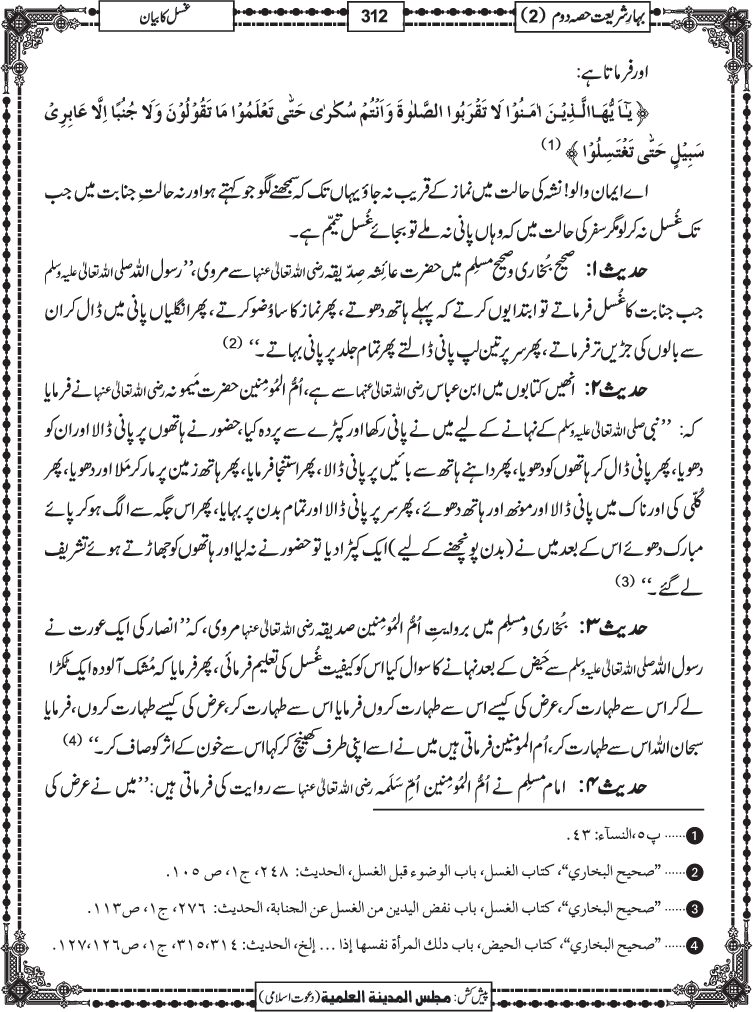 بہارِ شریعت حصہ دوم (2)
312
غسل کا بیان
اور فرماتا ہے:
﴿ یٰۤاَیُّهَا الَّذِیْنَ اٰمَنُوْا لَا تَقْرَبُوا الصَّلٰوةَ وَ اَنْتُمْ سُكٰرٰى حَتّٰى تَعْلَمُوْا مَا تَقُوْلُوْنَ وَ لَا جُنُبًا اِلَّا عَابِرِیْ
سَبِیْلٍ حَتّٰى تَغْتَسِلُوْا ﴾ (1)
اے ایمان والو! نشہ کی حالت میں نماز کے قریب نہ جاؤ یہاں تک کہ سمجھنے لگو جو کہتے ہو اور نہ حالتِ جنابت میں جب
تک غُسل نہ کر لو مگر سفر کی حالت میں کہ وہاں پانی نہ ملے تو بجائے غُسل تیمّم ہے۔
حدیث ۱: صحیح بُخاری و صحیح مسلِم میں حضرت عائِشہ صِدّیقہ رضی اللہ تعالیٰ عنہا سے مروی، ’’رسول اللہ صلی اللہ تعالیٰ علیہ وسلم
جب جنابت کا غُسل فرماتے تو ابتدا یوں کرتے کہ پہلے ہاتھ دھوتے، پھر نماز کا سا وُضو کرتے، پھر انگلیاں پانی میں ڈال کر ان
سے بالوں کی جڑیں تر فرماتے، پھر سر پر تین لپ پانی ڈالتے پھر تمام جلد پر پانی بہاتے۔‘‘ (2)
حدیث ۲: انھیں کتابوں میں ابن عباس رضی اللہ تعالیٰ عنہا سے ہے، اُمُّ المُومِنین حضرت مَیمونہ رضی اللہ تعالیٰ عنہا نے فرمایا
کہ: ’’نبی صلی اللہ تعالیٰ علیہ وسلم کے نہانے کے لیے میں نے پانی رکھا اور کپڑے سے پردہ کیا، حضور نے ہاتھوں پر پانی ڈالا اور ان کو
دھویا، پھر پانی ڈال کر ہاتھوں کو دھویا، پھر داہنے ہاتھ سے بائیں پر پانی ڈالا، پھر استنجا فرمایا، پھر ہاتھ زمین پر مار کر مَلا اور دھویا، پھر
کُلّی کی اور ناک میں پانی ڈالا اور مونھ اور ہاتھ دھوئے، پھر سر پر پانی ڈالا اور تمام بدن پر بہایا، پھر اس جگہ سے الگ ہو کر پائے
مبارک دھوئے اس کے بعد میں نے (بدن پونچھنے کے لیے) ایک کپڑا دیا تو حضور نے نہ لیا اور ہاتھوں کو جھاڑتے ہوئے تشریف
لے گئے۔‘‘ (3)
حدیث ۳: بُخاری و مسلِم میں بروایتِ اُمُّ المُومِنین صدیقہ رضی اللہ تعالیٰ عنہا مروی، کہ ’’انصار کی ایک عورت نے
رسول اللہ صلی اللہ تعالیٰ علیہ وسلم سے حَیض کے بعد نہانے کا سوال کیا اس کو کیفیتِ غُسل کی تعلیم فرمائی، پھر فرمایا کہ مُشک آلودہ ایک ٹکڑا
لے کر اس سے طہارت کر، عرض کی کیسے اس سے طہارت کروں فرمایا اس سے طہارت کر، عرض کی کیسے طہارت کروں، فرمایا
سبحان اللہ اس سے طہارت کر، اُم المومنین فرماتی ہیں میں نے اسے اپنی طرف کھینچ کر کہا اس سے خون کے اثر کو صاف کر۔‘‘ (4)
حدیث ۴: امام مسلِم نے اُمُّ المُومِنین اُمِّ سَلَمہ رضی اللہ تعالیٰ عنہا سے روایت کی فرماتی ہیں: ’’میں نے عرض کی
1 ...... پ۵، النسآء: ۴۳.
2 ...... ”صحیح البخاري“، کتاب الغسل، باب الوضوء قبل الغسل، الحدیث: ۲۴۸، ج۱، ص ۱۰۵.
3 ...... ”صحیح البخاري“، کتاب الغسل، باب نفض الیدین من الغسل عن الجنابة، الحدیث: ۲۷۶، ج۱، ص۱۱۳.
4 ...... ”صحیح البخاري“، کتاب الحیض، باب دلك المرأة نفسها إذا ... إلخ، الحدیث: ۳۱۴،۳۱۵، ج۱، ص۱۲۶،۱۲۷.
پیش کش: مجلس المدينة العلمية (دعوت اسلامی)